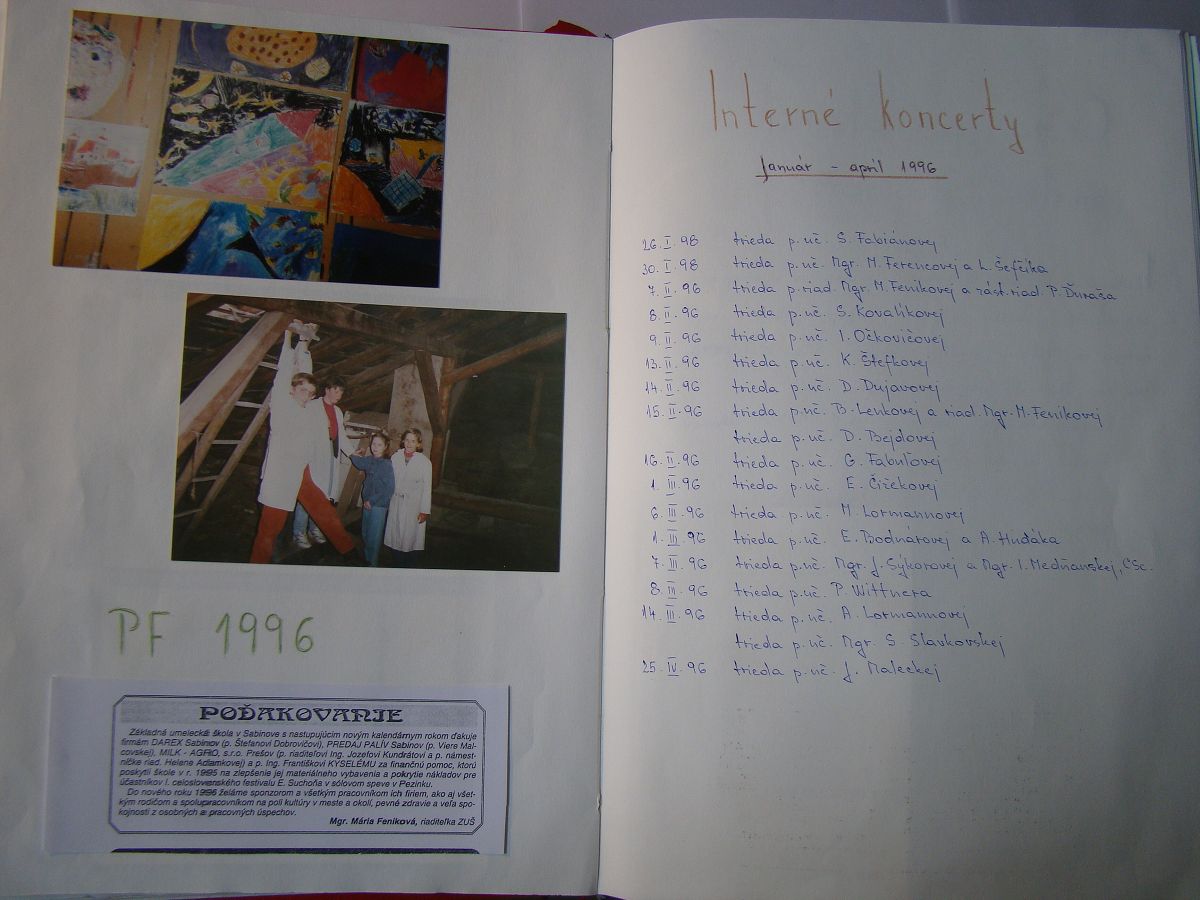 PF 1996
POĎAKOVANIE
Základná umelecká škola v Sabinove s nastupujúcim novým kalendárnym rokom ďakuje
firmám DAREX Sabinov (p. Štefanovi Dobrovičovi), PREDAJ PALÍV Sabinov (p. Viere Mal-
covskej), MILK - AGRO, s.r.o. Prešov (p. riaditeľovi Ing. Jozefovi Kundrátovi a p. námest-
níčke riad. Helene Adamkovej) a p. Ing. Františkovi KYSELÉMU za finančnú pomoc, ktorú
poskytli škole v r. 1995 na zlepšenie jej materiálneho vybavenia a pokrytie nákladov pre
účastníkov I. celoslovenského festivalu E. Suchoňa v sólovom speve v Pezinku.
Do nového roku 1996 želáme sponzorom a všetkým pracovníkom ich firiem, ako aj všet-
kým rodičom a spolupracovníkom na poli kultúry v meste a okolí, pevné zdravie a veľa spo-
kojnosti z osobných a pracovných úspechov.
Mgr. Mária Feniková, riaditeľka ZUŠ
Interné koncerty
Január - apríl 1996
26. I. 98 trieda p. uč. S. Fabiánovej
30. I. 98 trieda p. uč. Mgr. M. Ferencovej a L. Šefčíka
7. II. 96 trieda p. riad. Mgr. M. Feníkovej a zást. riad. P. Ďuraša
8. II. 96 trieda p. uč. S. Kovalíkovej
9. II. 96 trieda p. uč. I. Očkovičovej
13. II. 96 trieda p. uč. K. Štefkovej
14. II. 96 trieda p. uč. D. Dujavovej
15. II. 96 trieda p. uč. B. Lenkovej a riad. Mgr. M. Feníkovej
trieda p. uč. D. Bejdovej
16. II. 96 trieda p. uč. G. Fabuľovej
1. III. 96 trieda p. uč. E. Čižekovej
6. III. 96 trieda p. uč. M. Lormannovej
1. III 96 trieda p. uč. E. Bodnárovej a A. Hudáka
7. III. 96 trieda p. uč. Mgr. J. Sýkorovej a Mgr. I. Medňanskej, CSc.
8. III. 96 trieda p. uč. P. Wittnera
14. III. 96 trieda p. uč. A. Lormannovej
trieda p. uč. Mgr. S. Slavkovskej
25. IV. 96 trieda p. uč. J. Maleckej